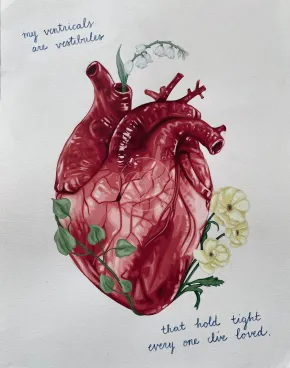 my ventricals
are vestibules
that hold tight
every one I've loved.